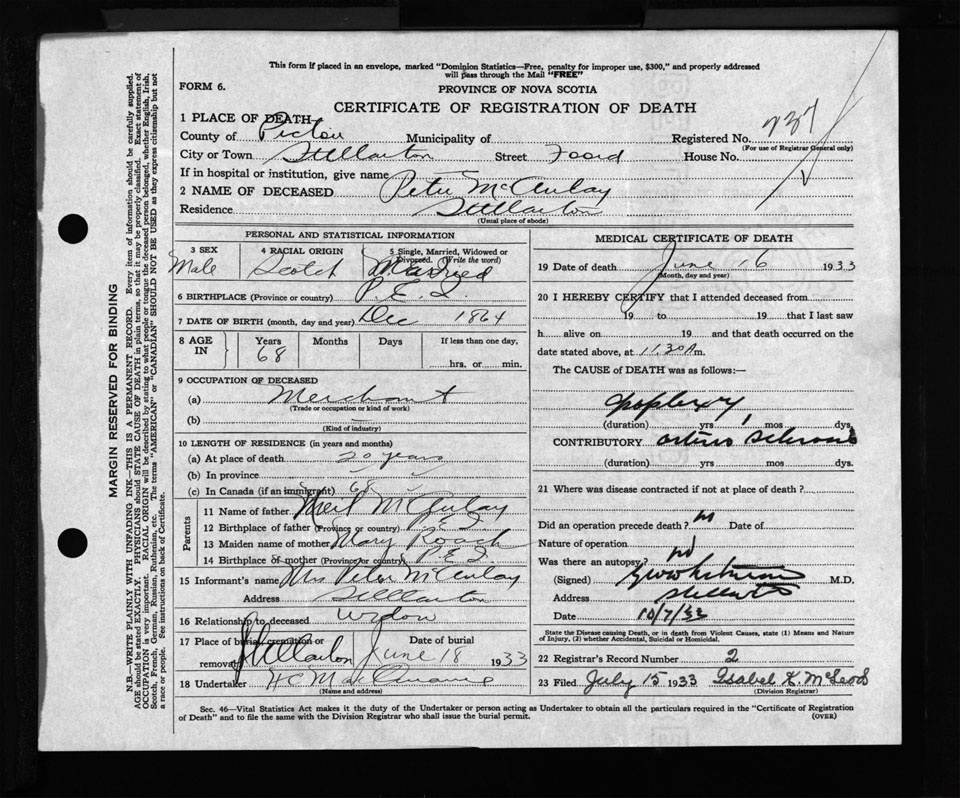 This form if placed in an envelope, marked "Dominion Statistics—Free, penalty for improper use, $300," and properly addressed
will pass through the Mail "FREE"
FORM 6.
PROVINCE OF NOVA SCOTIA
CERTIFICATE OF REGISTRATION OF DEATH
1 PLACE OF DEATH—
County of Pictou Municipality of Registered No. 737
(For use of Registrar General only)
City or Town Stellarton Street Foord House No.
If in hospital or institution, give name
2 NAME OF DECEASED Peter McAulay
Residence Stellarton
(Usual place of abode)
PERSONAL AND STATISTICAL INFORMATION
3 SEX 4 RACIAL ORIGIN 5 Single, Married, Widowed or Divorced. (Write the word)
Male Scotch Married
6 BIRTHPLACE (Province or country) P.E.I.
7 DATE OF BIRTH (month, day and year) Dec 1864
8 AGE IN Years Months Days If less than one day,
68 hrs. or min.
9 OCCUPATION OF DECEASED
(a) Merchant
(Trade or occupation or kind of work)
(b)
(Kind of industry)
10 LENGTH OF RESIDENCE (in years and months)
(a) At place of death 20 years
(b) In province
(c) In Canada (if an immigrant) 68
Parents
11 Name of father Neil McAulay
12 Birthplace of father (Province or country) P.E.I
13 Maiden name of mother Mary Roach
14 Birthplace of mother (Province/country) P.E.I
15 Informant's name Mrs Peter McAulay
Address Stellarton
16 Relationship to deceased widow
17 Place of burial, cremation or removal Stellarton Date of burial June 18 1933
18 Undertaker H C
(Name and address)
MEDICAL CERTIFICATE OF DEATH
19 Date of death June 16 1933
(Month, day and year)
20 I HEREBY CERTIFY that I attended deceased from
19 to 19 that I last saw
h alive on 19 and that death occurred on
date stated above, at 11.30 A m.
The CAUSE of DEATH was as follows:—
Apoplexy
(duration) yrs mos dys.
CONTRIBUTORY
(duration) yrs mos dys.
21 Where was disease contracted if not at place of death?
Did an operation precede death? no Date of
Nature of operation
Was there an autopsy? no
(Signed) M.D.
Address
Date 10/7/33
State the Disease causing Death, or in death from Violent Causes, state (1) Means and Nature
of Injury, (2) whether Accidental, Suicidal or Homicidal.
22 Registrar's Record Number 2
23 Filed July 15 1933 Isabel K. McLeod
(Division Registrar)
Sec. 46—Vital Statistics Act makes it the duty of the Undertaker or person acting as Undertaker to obtain all the particulars required in the "Certificate of Registration
of Death" and to file the same with the Division Registrar who shall issue the burial permit. (OVER)
MARGIN RESERVED FOR BINDING
N.B.—WRITE PLAINLY WITH UNFADING INK—THIS IS A PERMANENT RECORD. Every item of information should be carefully supplied.
AGE should be stated EXACTLY. PHYSICIANS should STATE CAUSE OF DEATH in plain terms, so that it may be properly classified. Exact statement of
OCCUPATION is very important. RACIAL ORIGIN will be described by stating to what people or tongue the deceased person belonged, whether English, Irish,
Scotch, French, German, Russian, Ruthenian, etc. The terms "AMERICAN" or "CANADIAN" SHOULD NOT BE USED as they express citizenship but not
a race or people. See instructions on back of Certificate.